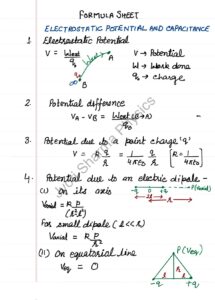 FORMULA SHEET
ELECTROSTATIC POTENTIAL AND CAPACITANCE
1. Electrostatic Potential
V = Wext / q₀
Wext
A
q₀
V → Potential
W → Work done
q₀ → charge
2. Potential difference
VA - VB = Wext (B→A) / q₀
3. Potential due to a point charge 'q'
V = k q / r = 1/4πε₀ q/r [k = 1/4πε₀]
4. Potential due to an electric dipole -
(i) on its axis
-q 0 +q P(Vaxial)
Vaxial = k p / (r²-l²)
r
For small dipole (l << r)
Vaxial = k p / r²
(ii) On equatorial line
P(Veq)
Veq = 0
r
-q +q
Physics